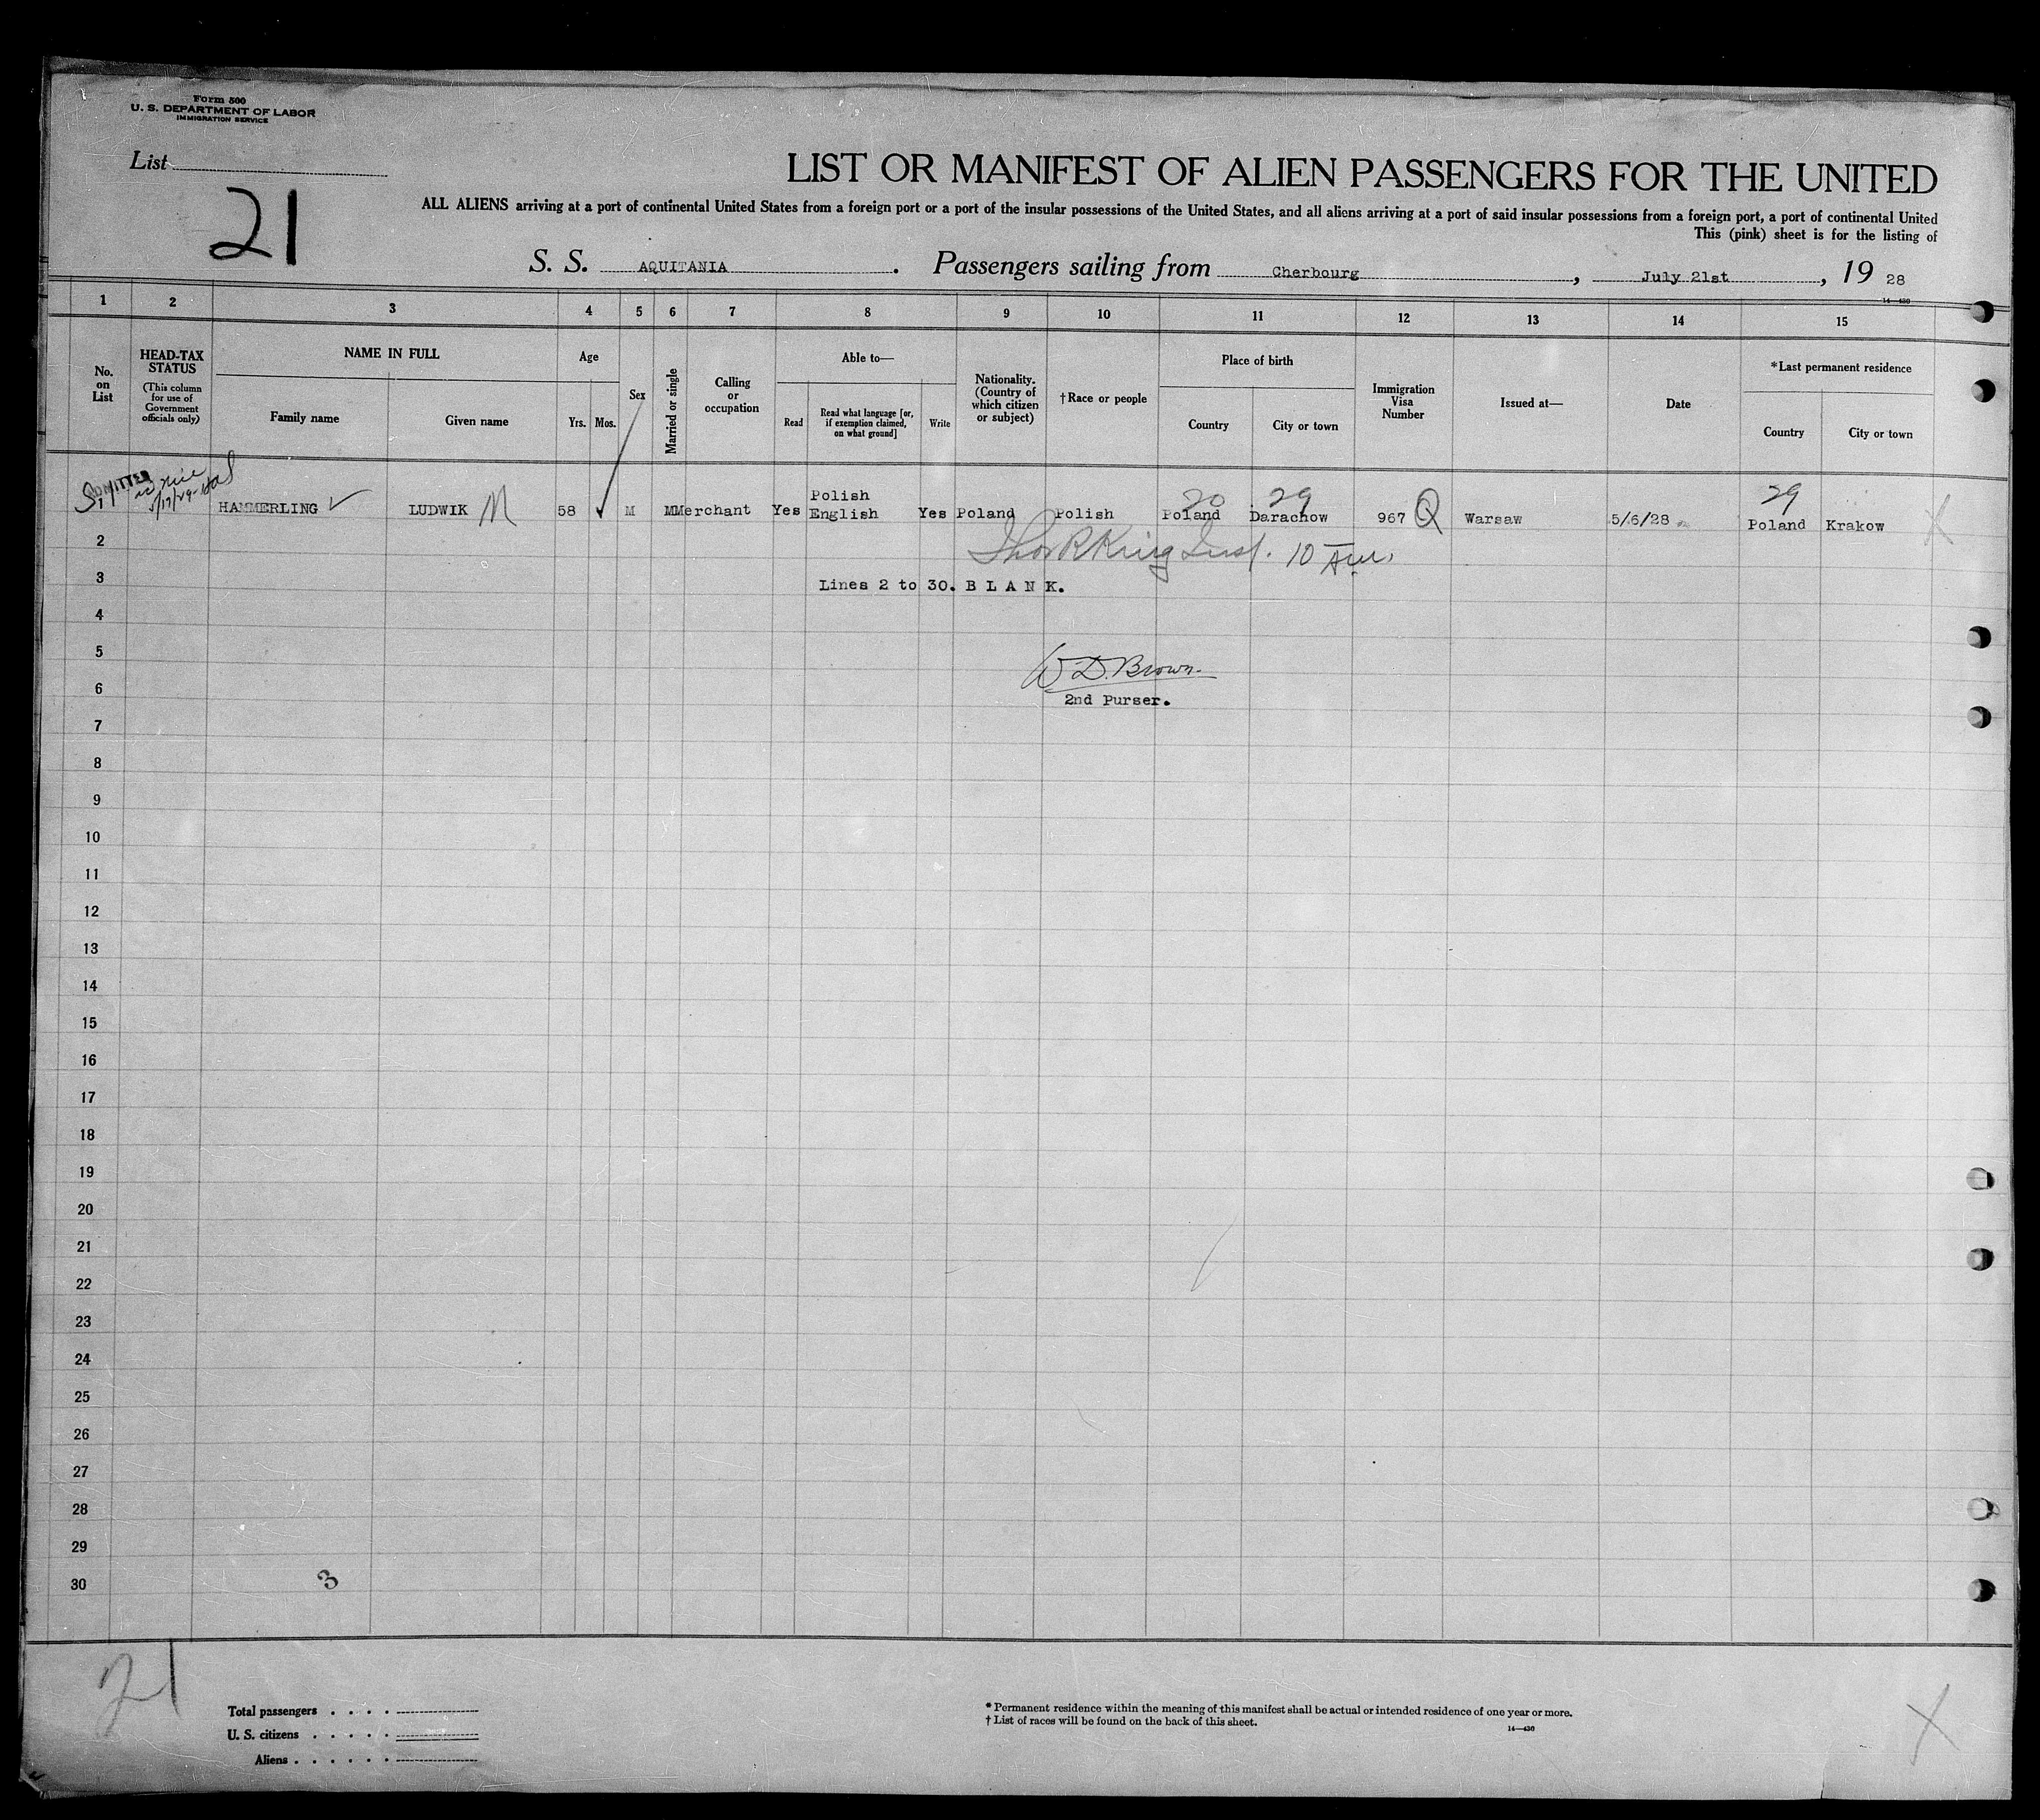 Form 500
U. S. DEPARTMENT OF LABOR
IMMIGRATION SERVICE
List
21
LIST OR MANIFEST OF ALIEN PASSENGERS FOR THE UNITED
ALL ALIENS arriving at a port of continental United States from a foreign port or a port of the insular possessions of the United States, and all aliens arriving at a port of said insular possessions from a foreign port, a port of continental United
This (pink) sheet is for the listing of
S. S. AQUITANIA. Passengers sailing from Cherbourg, July 21st, 19 28
14—430
1 2 3 4 5 6 7 8 9 10 11 12 13 14 15
No. on List
HEAD-TAX STATUS
(This column for use of Government officials only)
NAME IN FULL
Family name
Given name
Age
Yrs.
Mos.
Sex
Married or single
Calling or occupation
Able to—
Read
Read what language [or, if exemption claimed, on what ground]
Write
Nationality. (Country of which citizen or subject)
†Race or people
Place of birth
Country
City or town
Immigration Visa Number
Issued at—
Date
*Last permanent residence
Country
City or town
ADMITTED
20 29 29
Polish
HAMMERLING LUDWIK M 58 M M Merchant Yes English Yes Poland Polish Poland Darachow 967 Q Warsaw 5/6/28 Poland Krakow
2
Thos R King Insp. 10
3
Lines 2 to 30. B L A N K.
4
5
W. D. Brown
6
2nd Purser.
7
8
9
10
11
12
13
14
15
16
17
18
19
20
21
22
23
24
25
26
27
28
29
30
3
21
Total passengers
U. S. citizens
Aliens
* Permanent residence within the meaning of this manifest shall be actual or intended residence of one year or more.
† List of races will be found on the back of this sheet.
14—430
X